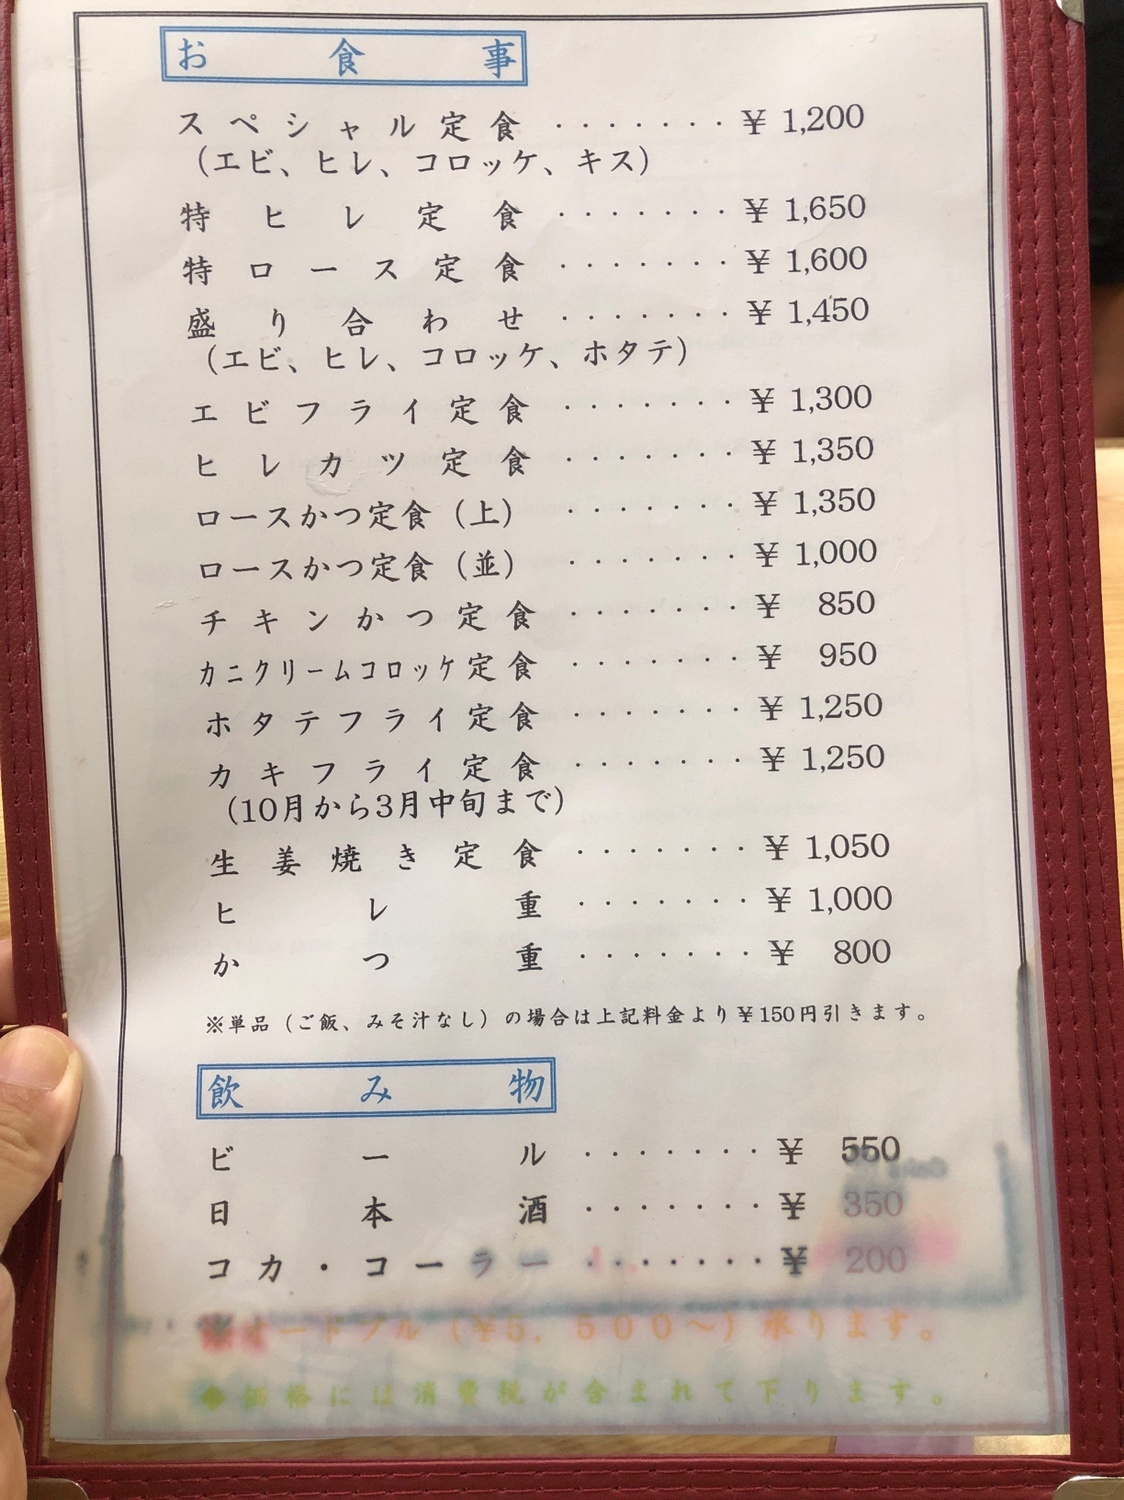 お食事
スペシャル定食 ・・・・・・・ ¥ 1,200
（エビ、ヒレ、コロッケ、キス）
特ヒレ定食 ・・・・・・・ ¥ 1,650
特ロース定食 ・・・・・・・ ¥ 1,600
盛り合わせ ・・・・・・・ ¥ 1,450
（エビ、ヒレ、コロッケ、ホタテ）
エビフライ定食 ・・・・・・・ ¥ 1,300
ヒレカツ定食 ・・・・・・・ ¥ 1,350
ロースかつ定食（上） ・・・・・・・ ¥ 1,350
ロースかつ定食（並） ・・・・・・・ ¥ 1,000
チキンかつ定食 ・・・・・・・ ¥ 850
カニクリームコロッケ定食 ・・・・・・・ ¥ 950
ホタテフライ定食 ・・・・・・・ ¥ 1,250
カキフライ定食 ・・・・・・・ ¥ 1,250
（10月から3月中旬まで）
生姜焼き定食 ・・・・・・・ ¥ 1,050
ヒレ重 ・・・・・・・ ¥ 1,000
かつ重 ・・・・・・・ ¥ 800
※単品（ご飯、みそ汁なし）の場合は上記料金より¥150円引きます。
飲み物
ビール ・・・・・・・ ¥ 550
日本酒 ・・・・・・・ ¥ 350
コカ・コーラー ・・・・・・・ ¥ 200
※オードブル（¥5，500〜）承ります。
◆価格には消費税が含まれて下ります。